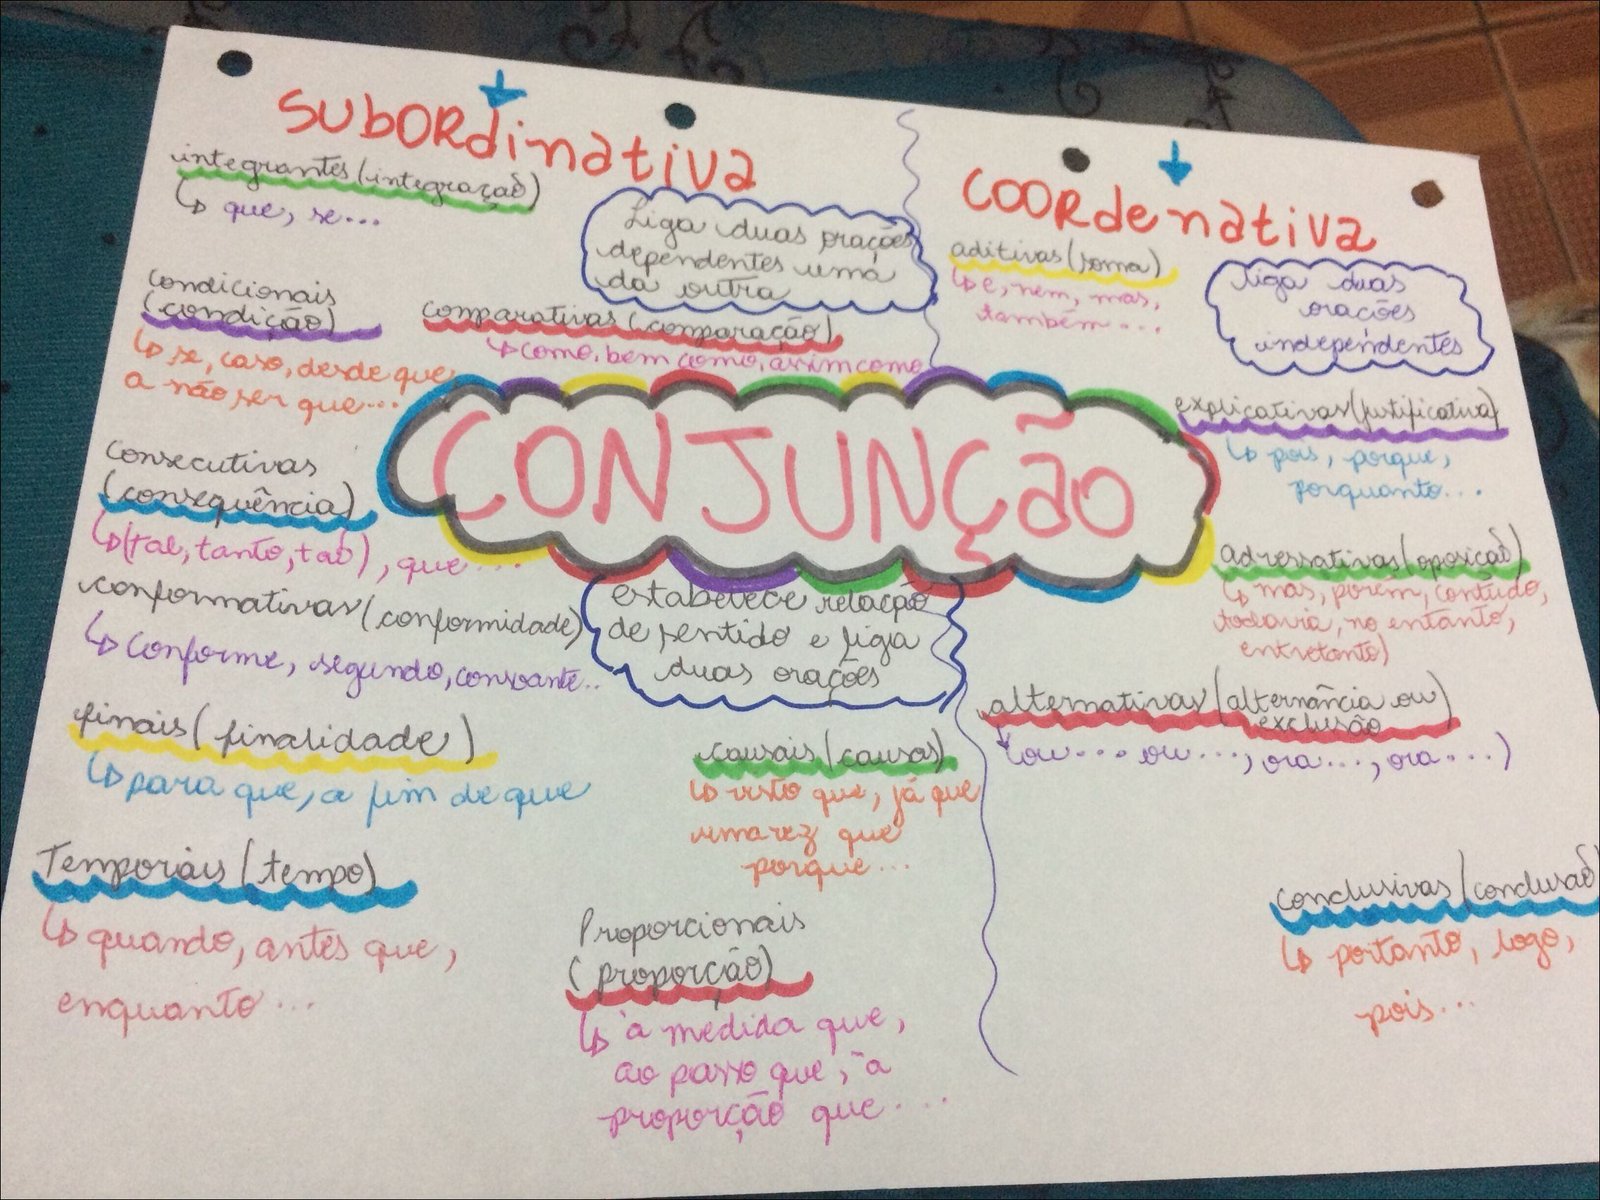 SUBORdinativa
integrantes (integração)
↳ que, se...
Liga duas orações
dependentes uma
da outra
condicionais
(condição)
↳ se, caso, desde que,
a não ser que...
comparativas (comparação)
↳ como, bem como, assim como
consecutivas
(consequência)
↳ (tal, tanto, tão), que...
conformativas (conformidade)
↳ conforme, segundo, consoante...
finais (finalidade)
↳ para que, a fim de que
Temporais (tempo)
↳ quando, antes que,
enquanto...
CONJUNÇÃO
estabelece relação
de sentido e liga
duas orações
causais (causas)
↳ visto que, já que
uma vez que
porque...
Proporcionais
(proporção)
↳ à medida que,
ao passo que, à
proporção que...
COORdenativa
aditivas (soma)
↳ e, nem, mas,
também...
liga duas
orações
independentes
explicativas (justificativa)
↳ pois, porque,
porquanto...
adressativas (oposição)
↳ mas, porém, contudo,
todavia, no entanto,
entretanto)
alternativas (alternância ou
exclusão)
(ou... ou..., ora..., ora...)
conclusivas (conclusão
↳ portanto, logo,
pois...